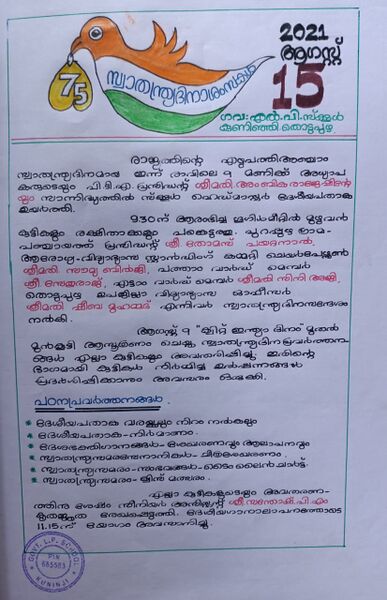 75
സ്വാതന്ത്ര്യദിനാശംസകൾ
2021
ആഗസ്റ്റ്
15
ഗവ: എൽ.പി.സ്കൂൾ
കുണിഞ്ഞി, തൊടുപുഴ
രാജ്യത്തിന്റെ എഴുപത്തിഅഞ്ചാം
സ്വാതന്ത്ര്യദിനമായ ഇന്ന് രാവിലെ 9 മണിക്ക് അധ്യാപ
കരുടെയും പി.ടി.എ. പ്രസിഡന്റ് ശ്രീമതി. അംബികരാജേഷിന്റെ
യും സാന്നിദ്ധ്യത്തിൽ സ്കൂൾ ഹെഡ്മാസ്റ്റർ ദേശീയപതാക
ഉയർത്തി.
9.30ന് ആരംഭിച്ച ഗൂഗിൾമീറ്റിൽ മുഴുവൻ
കുട്ടികളും രക്ഷിതാക്കളും പങ്കെടുത്തു. പുറപ്പുഴ ഗ്രാമ-
പഞ്ചായത്ത് പ്രസിഡന്റ് ശ്രീ. തോമസ് പയറ്റനാൽ,
ആരോഗ്യ-വിദ്യാഭ്യാസ സ്റ്റാൻഡിംഗ് കമ്മറ്റി ചെയർപേഴ്സൺ
ശ്രീമതി സൗമ്യ ബിൽജി, പത്താം വാർഡ് മെമ്പർ
ശ്രീ. എട്ടാം വാർഡ് മെമ്പർ ശ്രീമതി സിനി അജി,
തൊടുപുഴ ഉപജില്ലാ വിദ്യാഭ്യാസ ഓഫീസർ
ശ്രീമതി ഷീബ മുഹമ്മദ് എന്നിവർ സ്വാതന്ത്ര്യദിനസന്ദേശം
നൽകി.
ആഗസ്റ്റ് 9 "ക്വിറ്റ് ഇന്ത്യാ ദിനം" മുതൽ
മുൻകൂട്ടി ആസൂത്രണം ചെയ്ത സ്വാതന്ത്ര്യദിനപ്രവർത്തന-
ങ്ങൾ എല്ലാ കുട്ടികളും അവതരിപ്പിച്ചു. ഇതിന്റെ
ഭാഗമായി കുട്ടികൾ നിർമ്മിച്ച ഉൽപ്പന്നങ്ങൾ
പ്രദർശിപ്പിക്കാനും അവസരം ഒരുക്കി.
പഠനപ്രവർത്തനങ്ങൾ.
* ദേശീയപതാക വരയ്ക്കലും നിറം നൽകലും
* ദേശീയപതാക-നിർമ്മാണം.
* ദേശഭക്തിഗാനങ്ങൾ-ശേഖരണവും ആലാപനവും
* സ്വാതന്ത്ര്യസമരസേനാനികൾ-ചിത്രശേഖരണം.
* സ്വാതന്ത്ര്യസമരം-സംഭവങ്ങൾ-ടൈംലൈൻ ചാർട്ട്.
* സ്വാതന്ത്ര്യസമരം-ക്വിസ് മത്സരം.
എല്ലാ കുട്ടികളുടെയും അവതരണ-
ത്തിനു ശേഷം സീനിയർ അസിസ്റ്റന്റ് ശ്രീ. സന്തോഷ്.പി.എം
കൃതജ്ഞത രേഖപ്പെടുത്തി. ദേശീയഗാനാലാപനത്തോടെ
11.15 ന് യോഗം അവസാനിച്ചു.
GOVT. L.P. SCHOOL
PIN
685583
KUNINJI